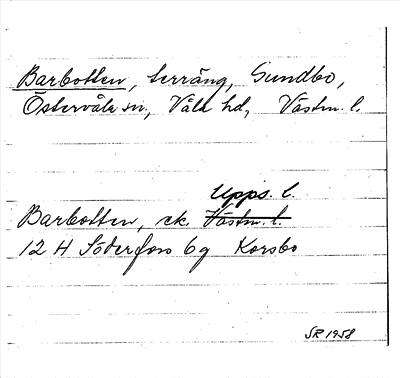 Barbotten, terräng, Sundbo,
Östervåla sn, Våla hd, Västm. l.
Upps. l.
Barbotten, ek. Västm. l.
12 H Söderfors 6g Korsbo
SR 1958